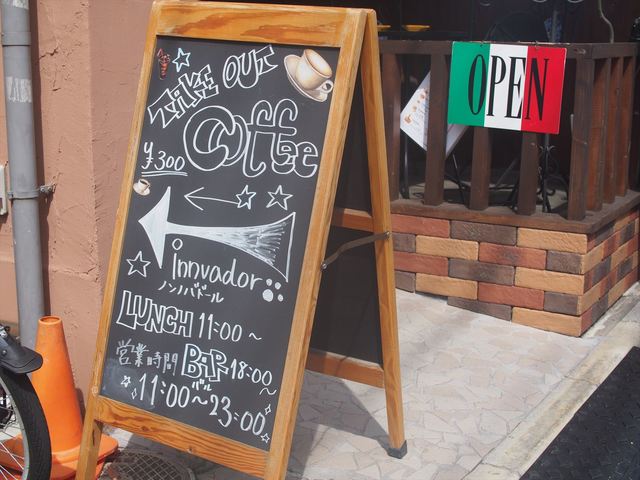 TAKE OUT
Coffee
¥300
innvador
ノンノバドール
LUNCH 11:00～
営業時間 BAR 18:00～
バル
11:00～23:00
OPEN